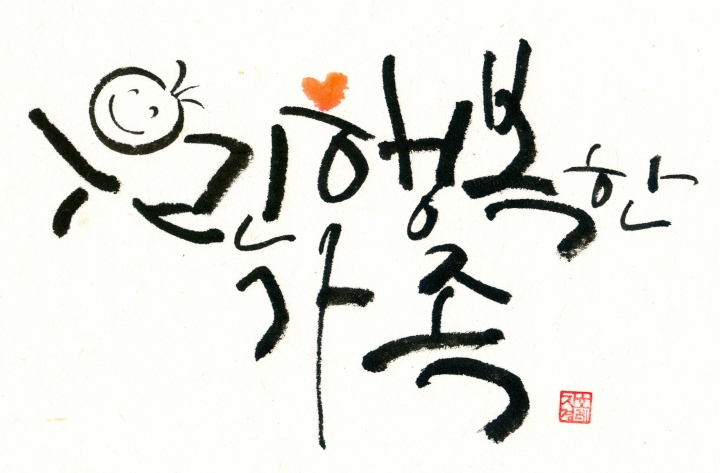 우린 행복한
가족